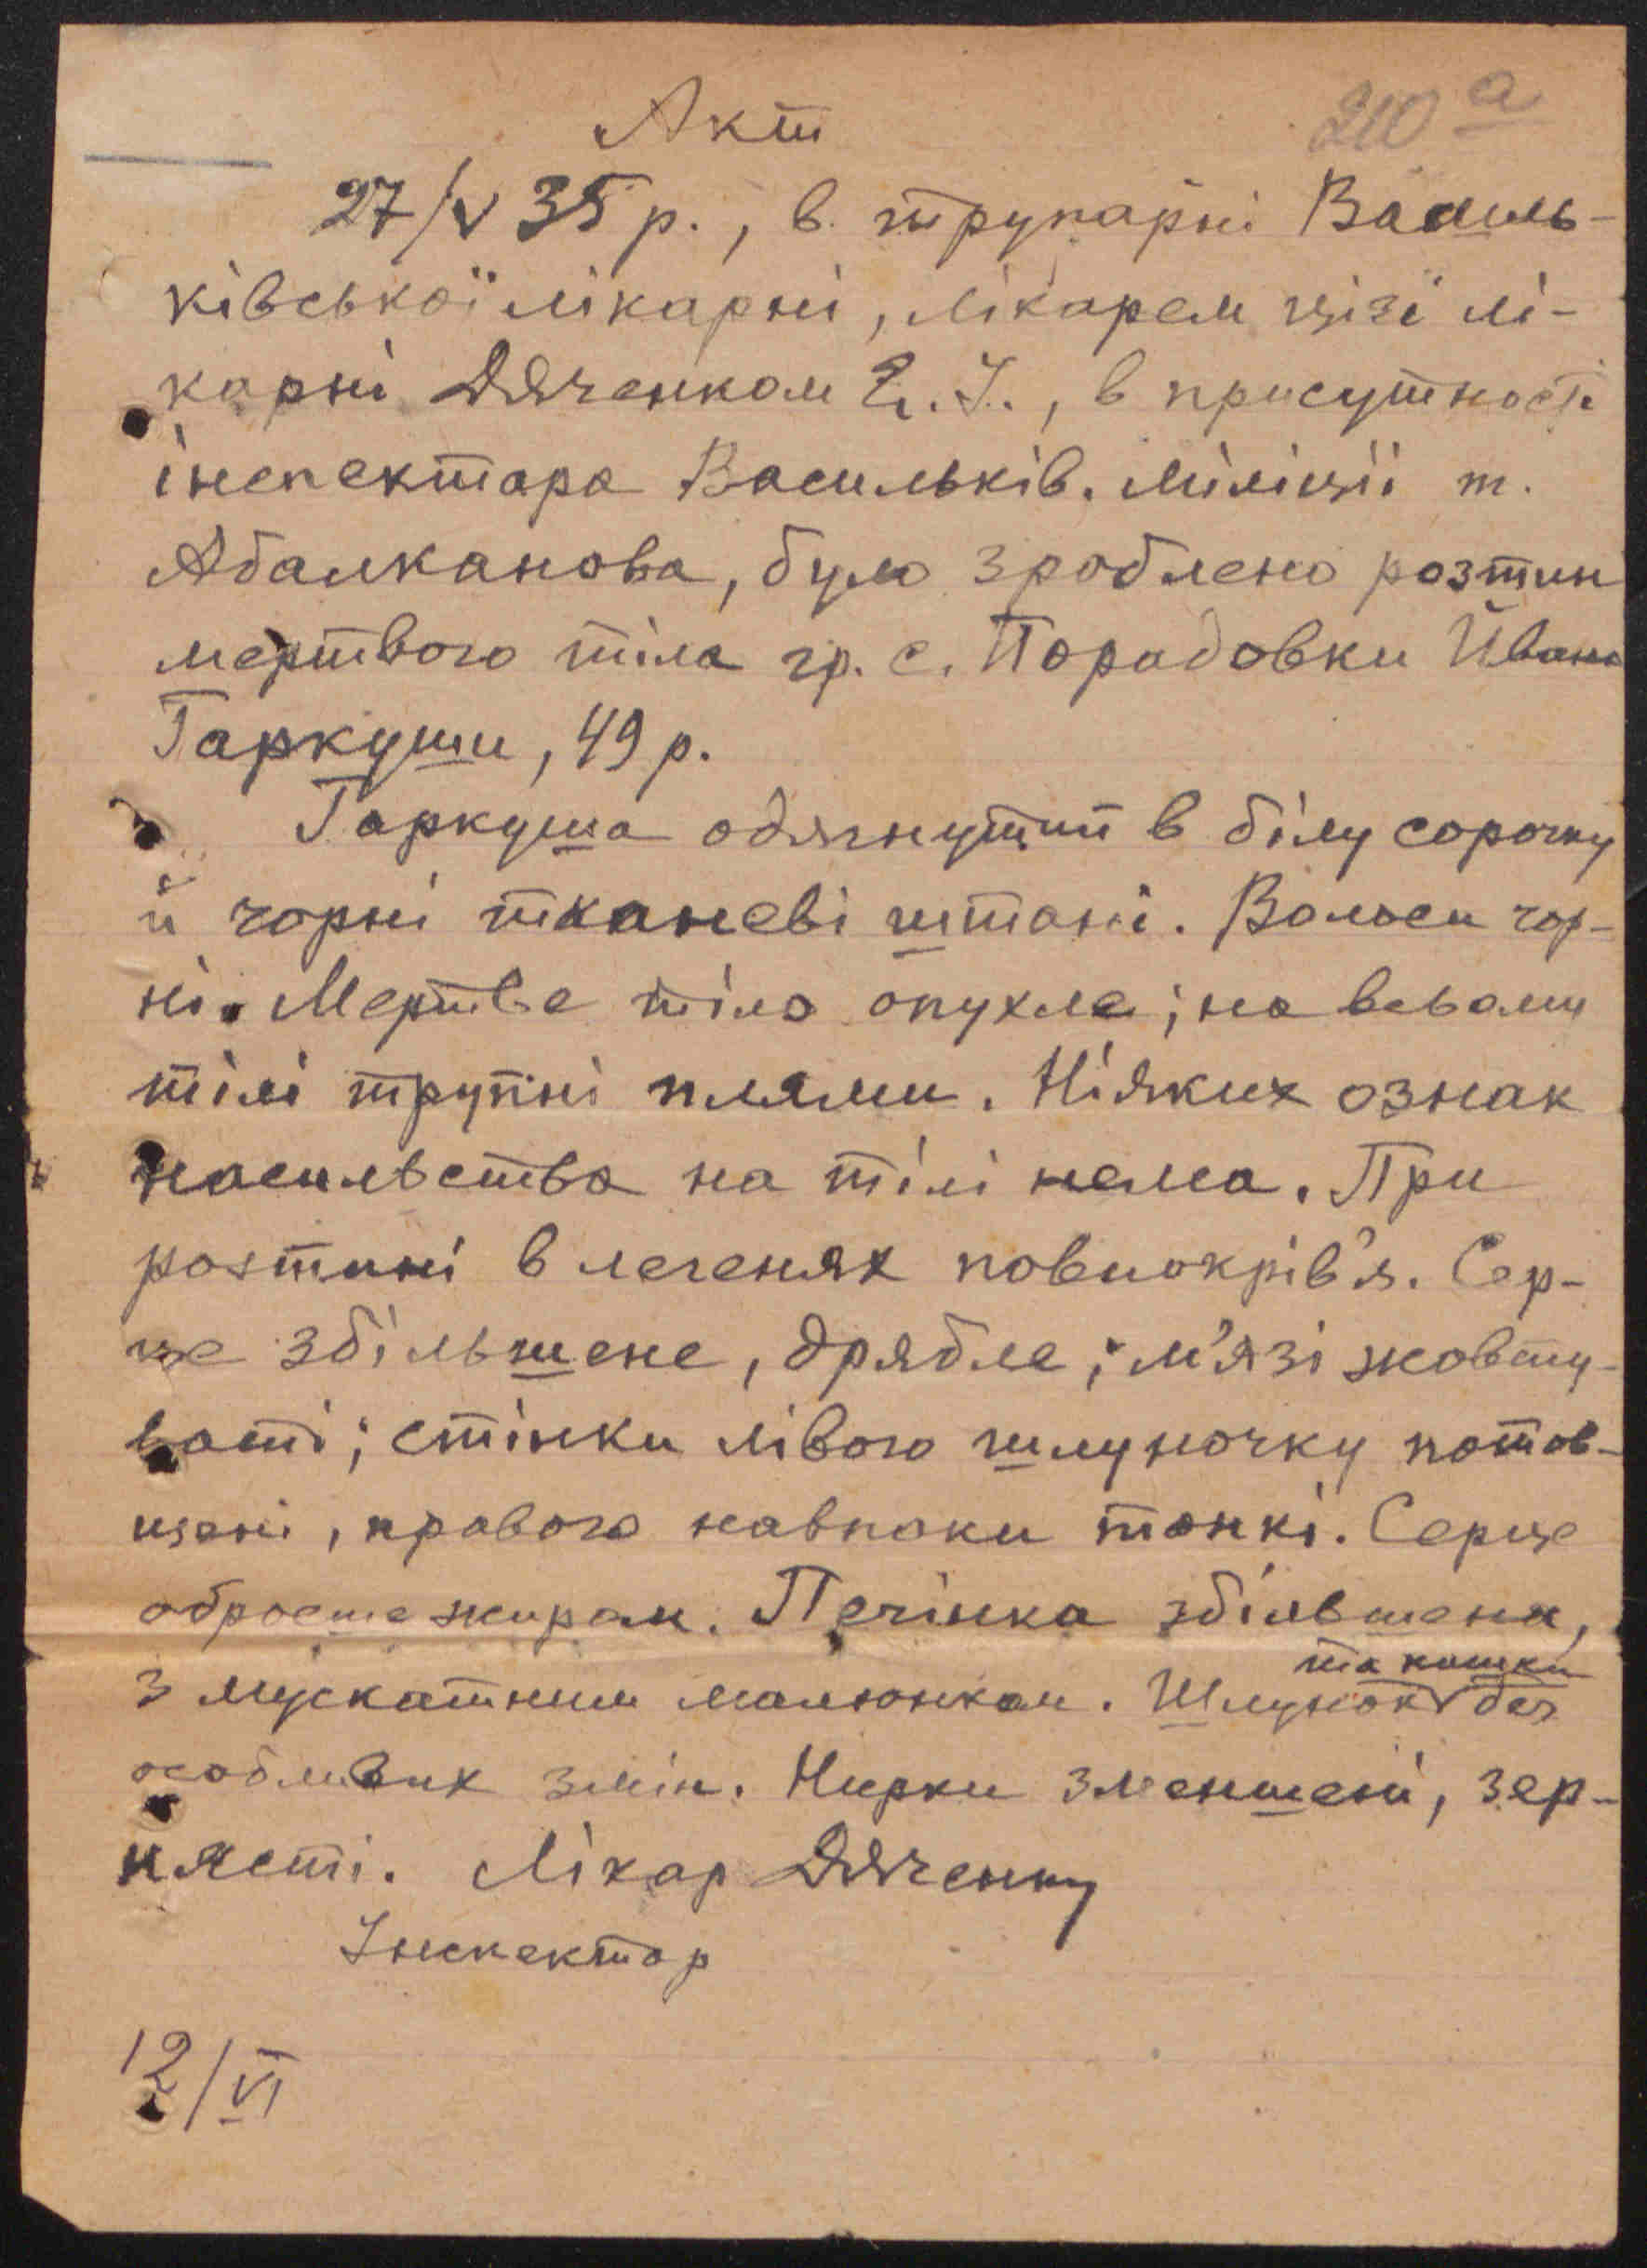 210 а
Акт
27/V 35 р., в трупарні Василь-
ківської лікарні, лікарем цієї лі-
карні Дяченком Є. І., в присутності
інспектора Васильків. міліції т.
Абалканова, було зроблено розтин
мертвого тіла гр. с. Порадовки Йвана
Гаркуши, 49 р.
Гаркуша одягнутий в білу сорочку
й чорні тканеві штані. Волоси чор-
ні. Мертве тіло опухле; на всьому
тілі трупні плями. Ніяких ознак
насильства на тілі нема. При
розтині в легенях повнокрів'я. Сер-
це збільшене, дрябле; м'язі жовту-
ваті; стінки лівого шлуночку потов-
щені, правого навпаки тонкі. Серце
обросше жиром. Печінка збільшена,
та кишки
з мускатним малюнком. Шлунок без
особливих змін. Нирки зменшені, зер-
нясті. Лікар Дяченко
Інспектор
12/VI